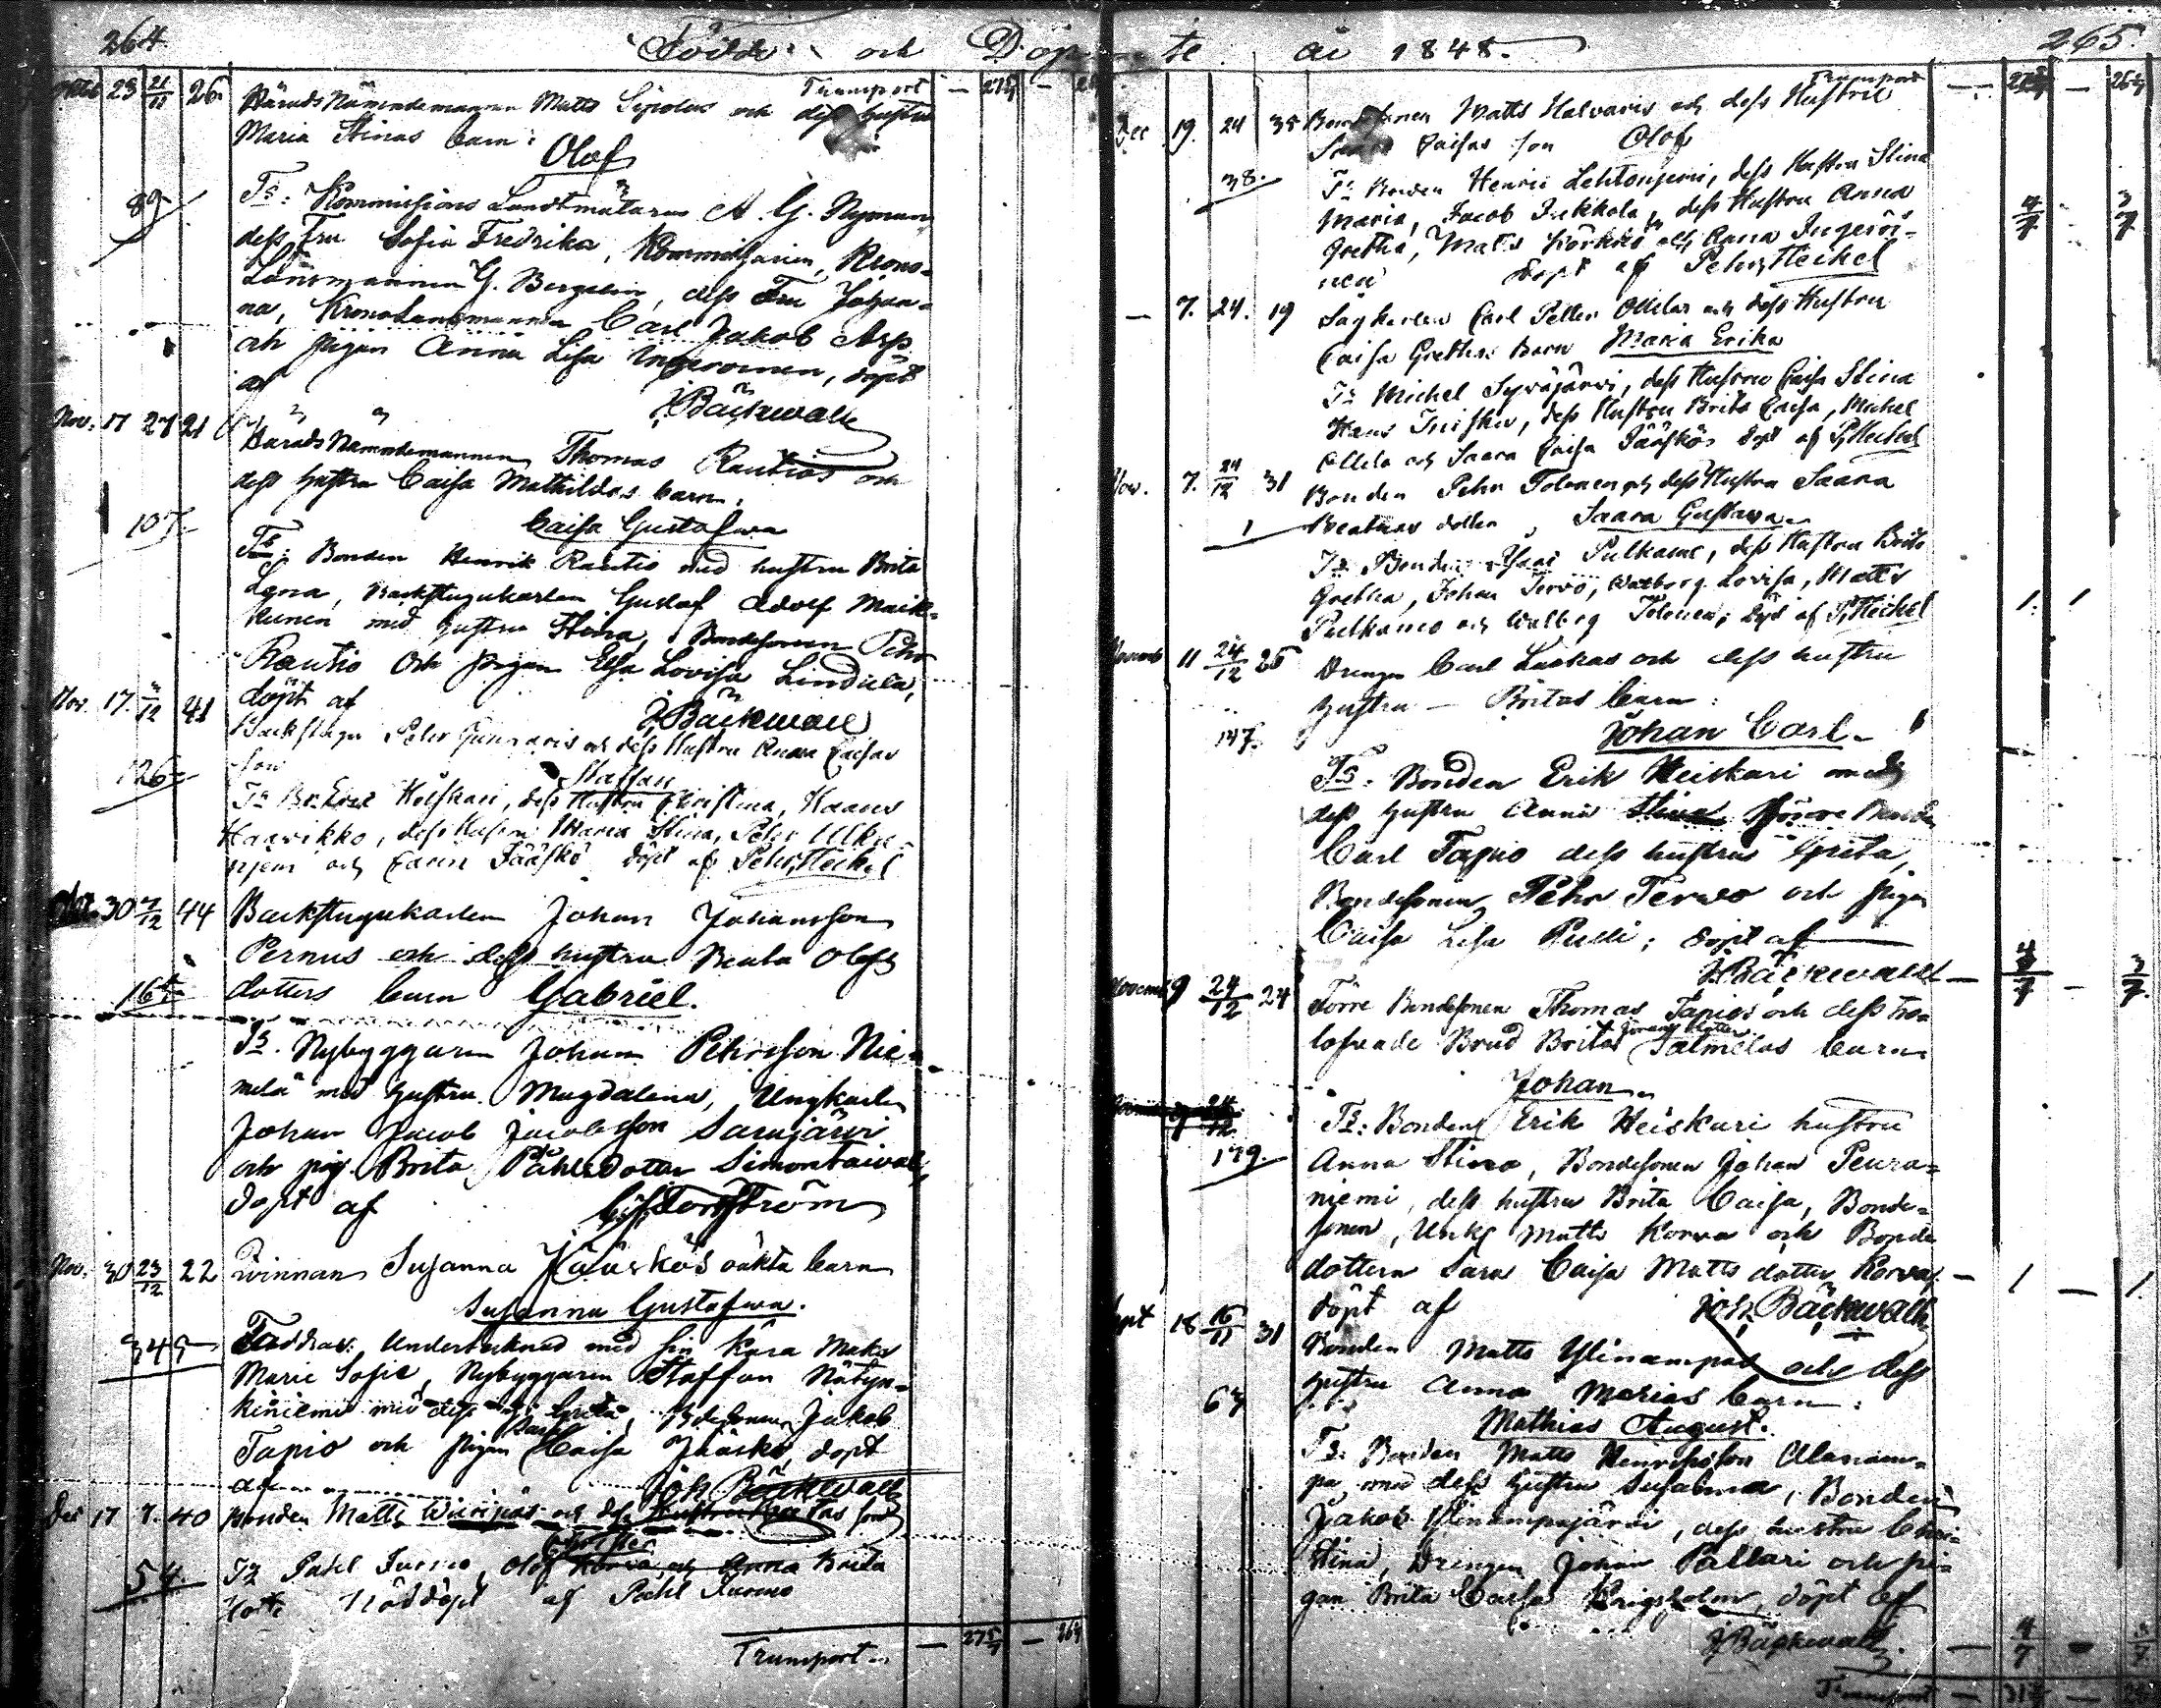 264
Födde och Döp
Transport
Oktob 23 21/11 26 Härads Nämndemannen Matts Sipolas och dess hustru
Maria Stinas barn:
Olof
89 Ts: Kommissions Landtmätaren A. G. Nyman
dess Fru Sofia Fredrika, Kommissarien, Krono-
Länsmannen G. Bergelin, dess Fru Johan-
na, Kronolänsmannen Carl Jakob Asp
och pigan Anna Lisa Ingeroinen, döpt
af J. Bäckwall
Nov. 17 27 21 Härads Nämndemannen Thomas Rautios och
dess hustru Caisa Mathildas barn.
Caisa Gustafwa
107 Ts: Bonden Henrik Rautio med hustru Brita
Lena, Backstugukarlen Gustaf Adolf Maik-
kunen med hustru Stina, Bondesonen Pehr
Rautio Och pigan Elsa Lovisa Lindula,
döpt af J Bäckwall
Nov. 17. 3/12 41 Backstugu Petter Gunnaris och dess Hustru Anna Caisas
Son Staffan
126 Ts Bn Erik Heiskari, dess Hustru Christina, Haans
Haavikko, dess Hustru Maria Stina, Petter Ulku-
njemi och Carin Jääskö döpt af Pehr Heickel
30 7/12 44 Backstugukarlen Johan Johansson
Pernus och dess hustru Beata Olofs
dotters barn Gabriel.
164 Ts. Nybyggaren Johan Pehrsson Nie-
melä med hustru Magdalena, Ungkarlen
Johan Jacob Jacobsson Sarajärvi
och pig. Brita Påhlsdotter Simontaival,
döpt af Torfström
Nov. 30 23/12 22 Qvinnan Susanna Jääskös oäkta barn
Susanna Gustafwa.
345 Faddrar: Undertecknad med sin kära Maka
Marie Sofie, Nybyggaren Staffan Nätyn-
kiniemi med dess h: Greta, Bdesonen Jakob
Tapio och pigan Caisa Jääskö, döpt
af Joh Bäckwall
Dec 17 7. 40 Bonden Matts Wiiripäs och dess Hustru Beatas son
Christer
54. Ts Pahl Jurmo, Olof Korva, och Anna Brita
Nöddöpt af Pahl Jurmo
Transport. — 275/7 — 264

te år 1848. 265.
Transport
Dec 19. 24 35 Bondesonen Matts Halvaris och dess Hustrus
Caisas son Olof
38. Ts Bonden Henric Lehtonjemi, dess Hustru Stina
Maria, Jacob Pukkola, dess Hustru Anna
Gretha, Matts Körkkö och Anna Ingeroi-
nen döpt af Pehr Heickel
— 7. 24. 19 Sågkarlen Carl Petter Ollilas och dess Hustru
Caisa Grethas Barn Maria Erika
Ts Michel Syväjärvi, dess Hustru Caisa Stina
Hans Iniska, dess Hustru Brita Caisa, Michel
Ollila och Saara Caisa Jääskös döpt af P. Heickel
Nov. 7. 24/12 31 Bonden Pehr Tolonen och dess Hustru Saara
1 Beatas dotter, Saara Gustava
Ts Bonden Isac Pulkamo, dess Hustru Brita
Gretha, Johan Tervo, Walborg Lovisa, Matts
Pulkamo och Walborg Tolonen, döpt af P. Heickel
Novemb 11 24/12 25 Drengen Carl Luokas och dess hustru
hustru — Britas barn:
147. Johan Carl.
Ts. Bonden Erik Heiskari med
dess hustru Anna Stina förre Bonden
Carl Tapio dess hustrus Greta,
Bondesonen Pehr Terwo och pigan
Caisa Lisa Pulli; döpt af
J. Bäckwall
Novemb 9 24/12 24 Förre Bondesonen Thomas Tapios och dess tro-
lofvade Brud Britas Görans dotter Salmelas barn
Johan
179. Ts: Bonden Erik Heiskari hustru
Anna Stina, Bondesonen Johan Peura-
niemi, dess hustru Brita Caisa, Bonde-
sonen, Unk. Matts Korva och Bonde
dottern Sara Caisa Matts dotter Korva,
döpt af Joh. Bäckwall
Sept 18 16/11 31 Bonden Matts Ylinampas och dess
hustru Anna Marias barn:
67 Mathias August.
Ts. Bonden Matts Henriksson Alanam-
pa med dess hustru Susanna, Bonden
Jakob Ylinampajärvi, dess hustru Chri-
stina, Drengen Johan Pallari och pi-
gan Brita Caisa Krigsholm, döpt af
J Bäckwall.
Transport